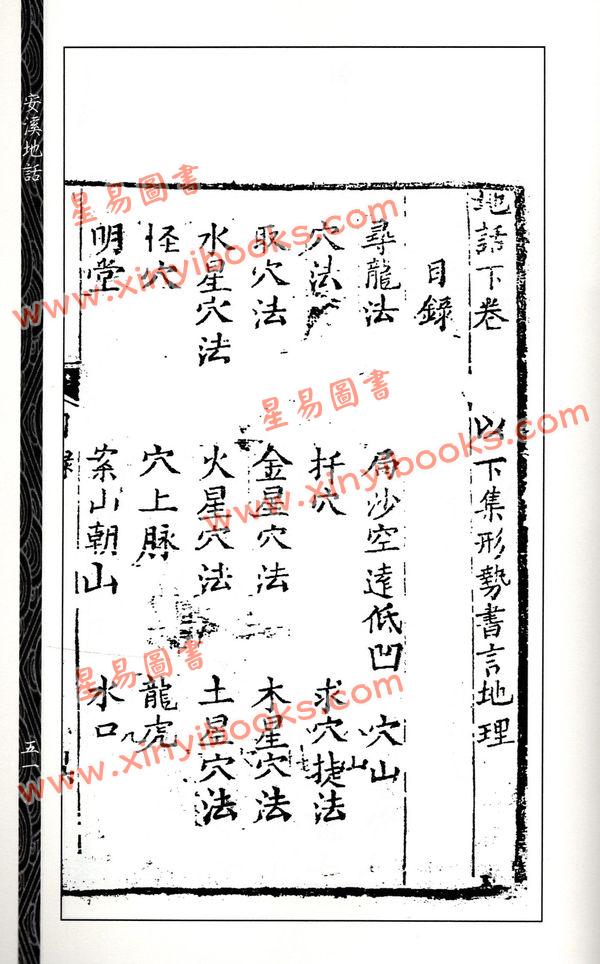 安溪地話
地話下卷 以下集形勢書言地理
目錄
尋龍法 局沙空遠低凹 穴山
穴法 扦穴 求穴捷法
取穴法 金星穴法 木星穴法
水星穴法 火星穴法 土星穴法
怪穴 穴上脉 龍虎
明堂 案山朝山 水口
目錄
五一
星易圖書
www.xinyibooks.com
星易圖書
www.xinyibooks.com
星易圖書
www.xinyibooks.com